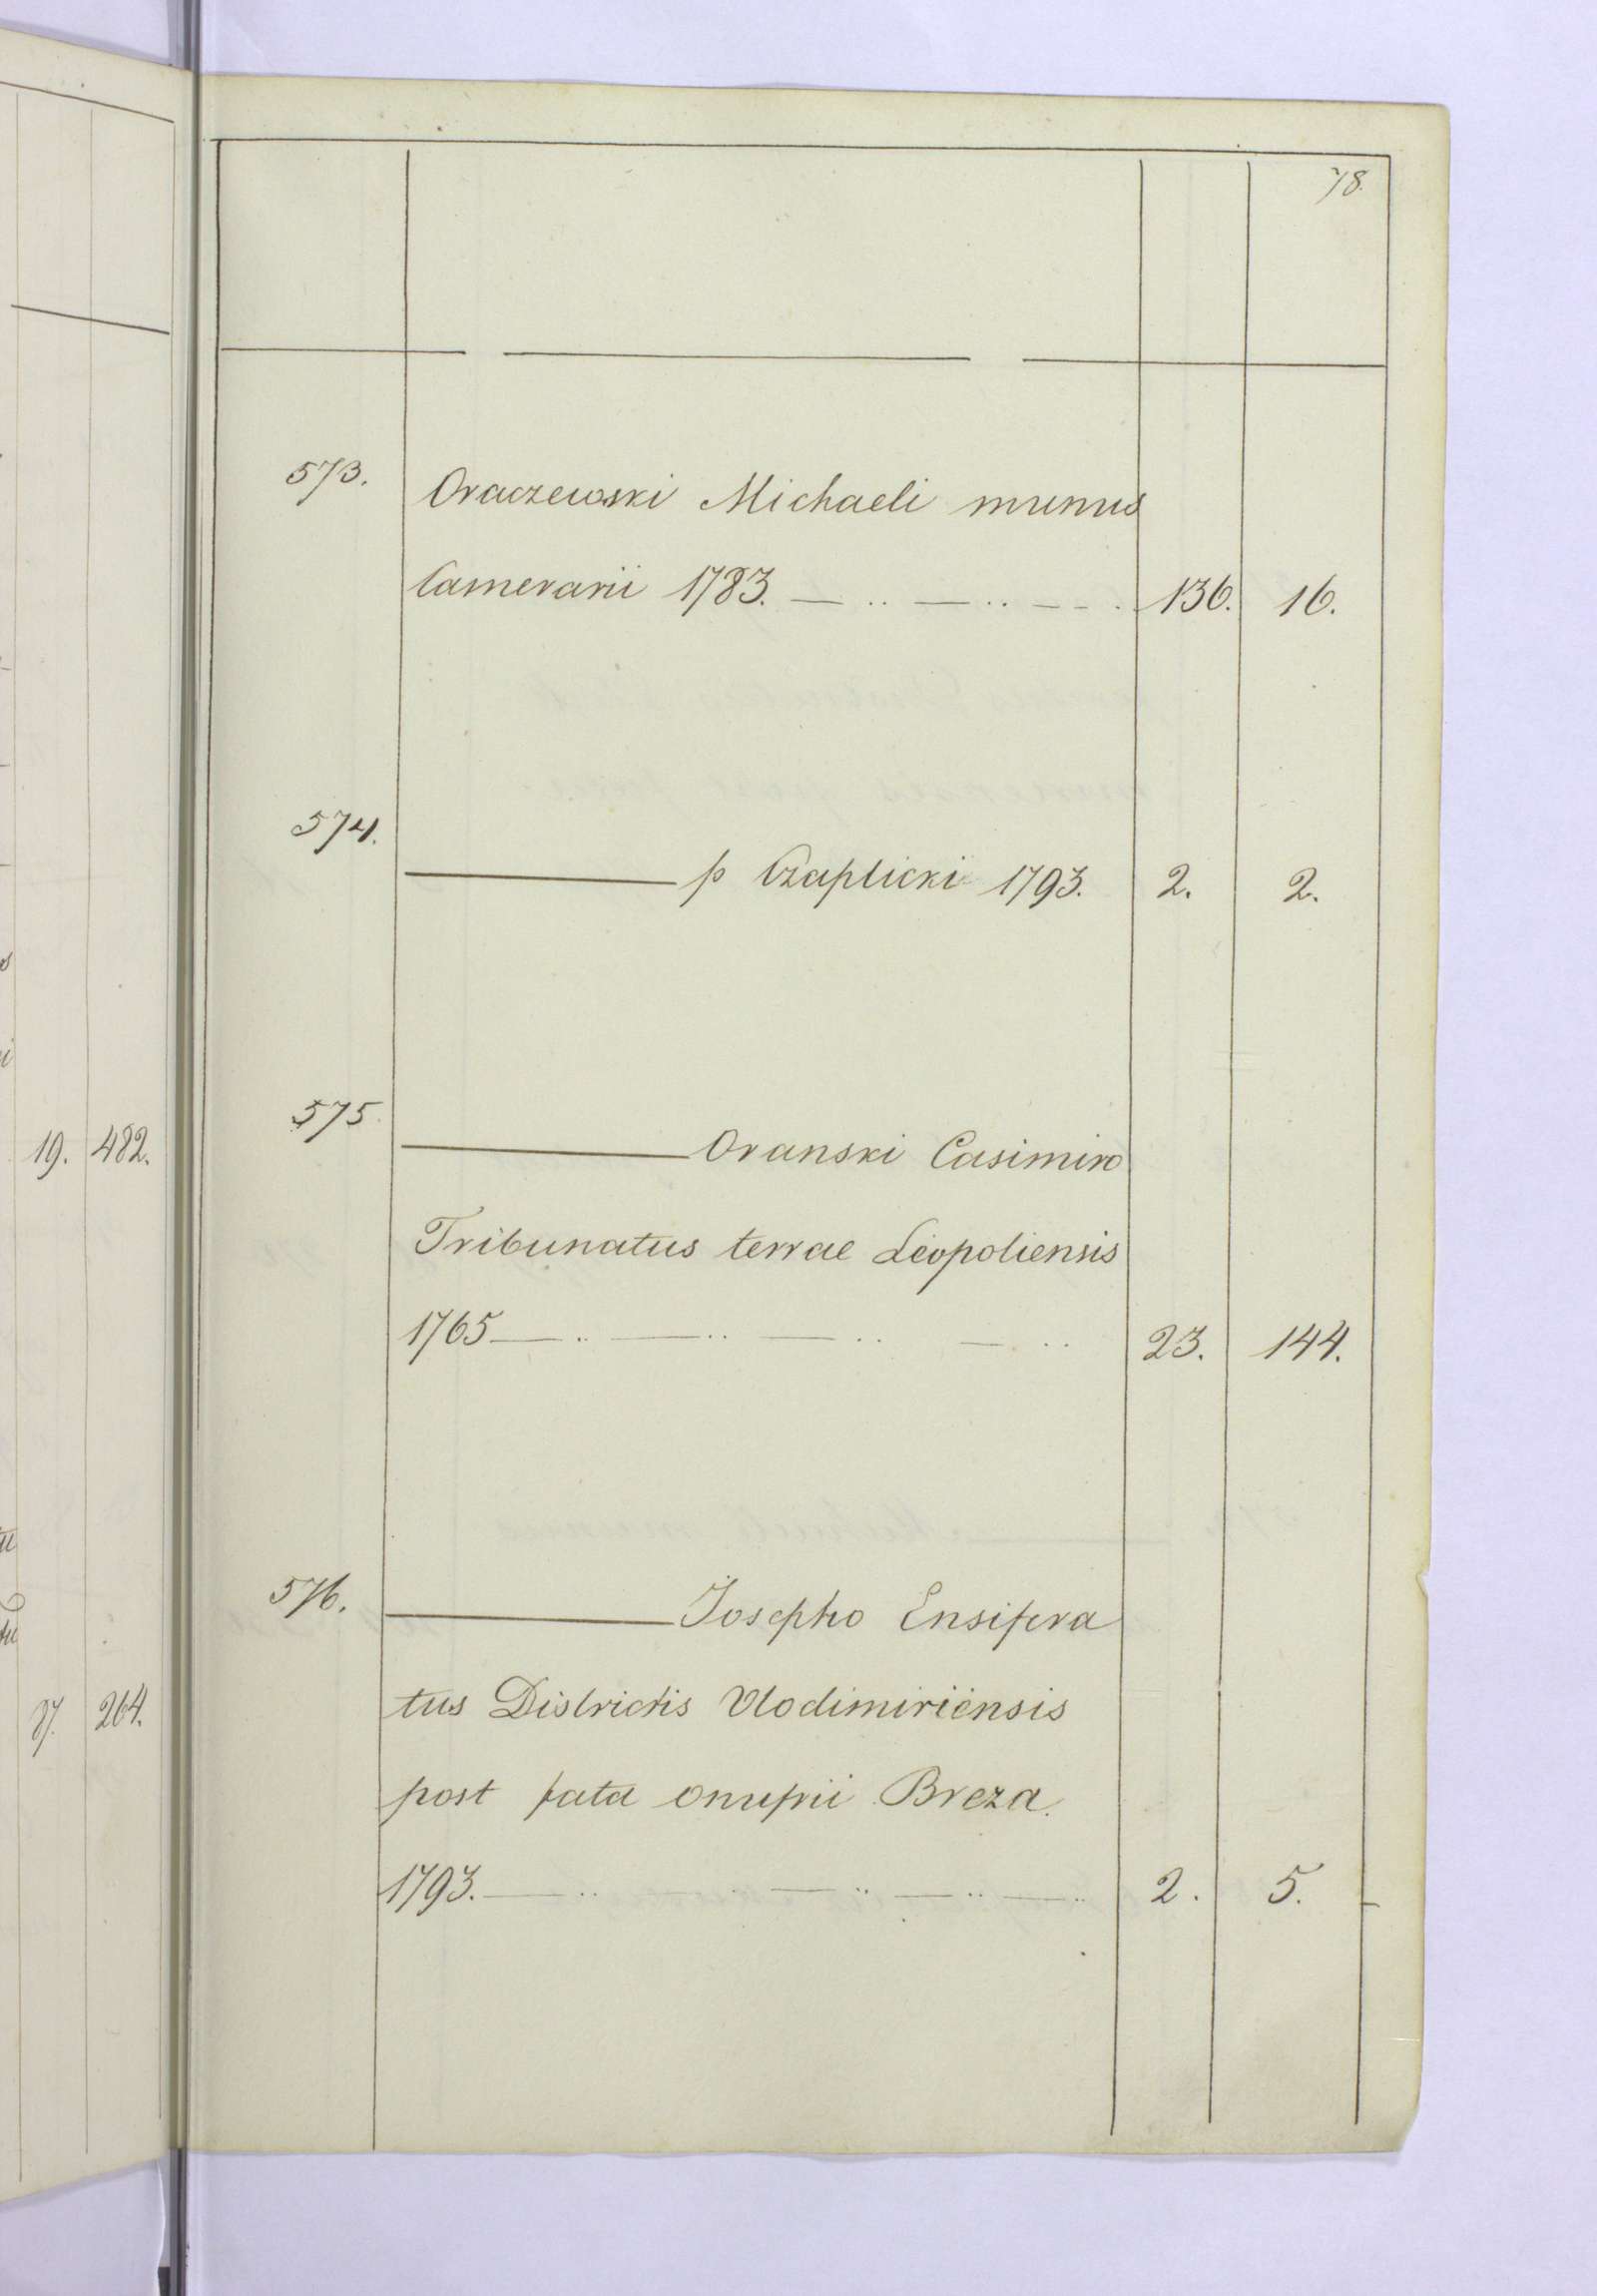 78.
573. Oraczewski Michaeli munus
Camerarii 1783. — .. — .. — - . 136. 16.
574. ——— p Czaplicki 1793. 2. 2.
575. ——— Oranski Casimiro
Tribunatus terrae Leopoliensis
1765 — .. — .. — .. — .. 23. 144.
576. ——— Josepho Ensifera
tus Districtis Vlodimiriensis
post fata Onufrii Breza.
1793. — .. — . — .. — .. — .. 2. 5.
19. 482.
264.